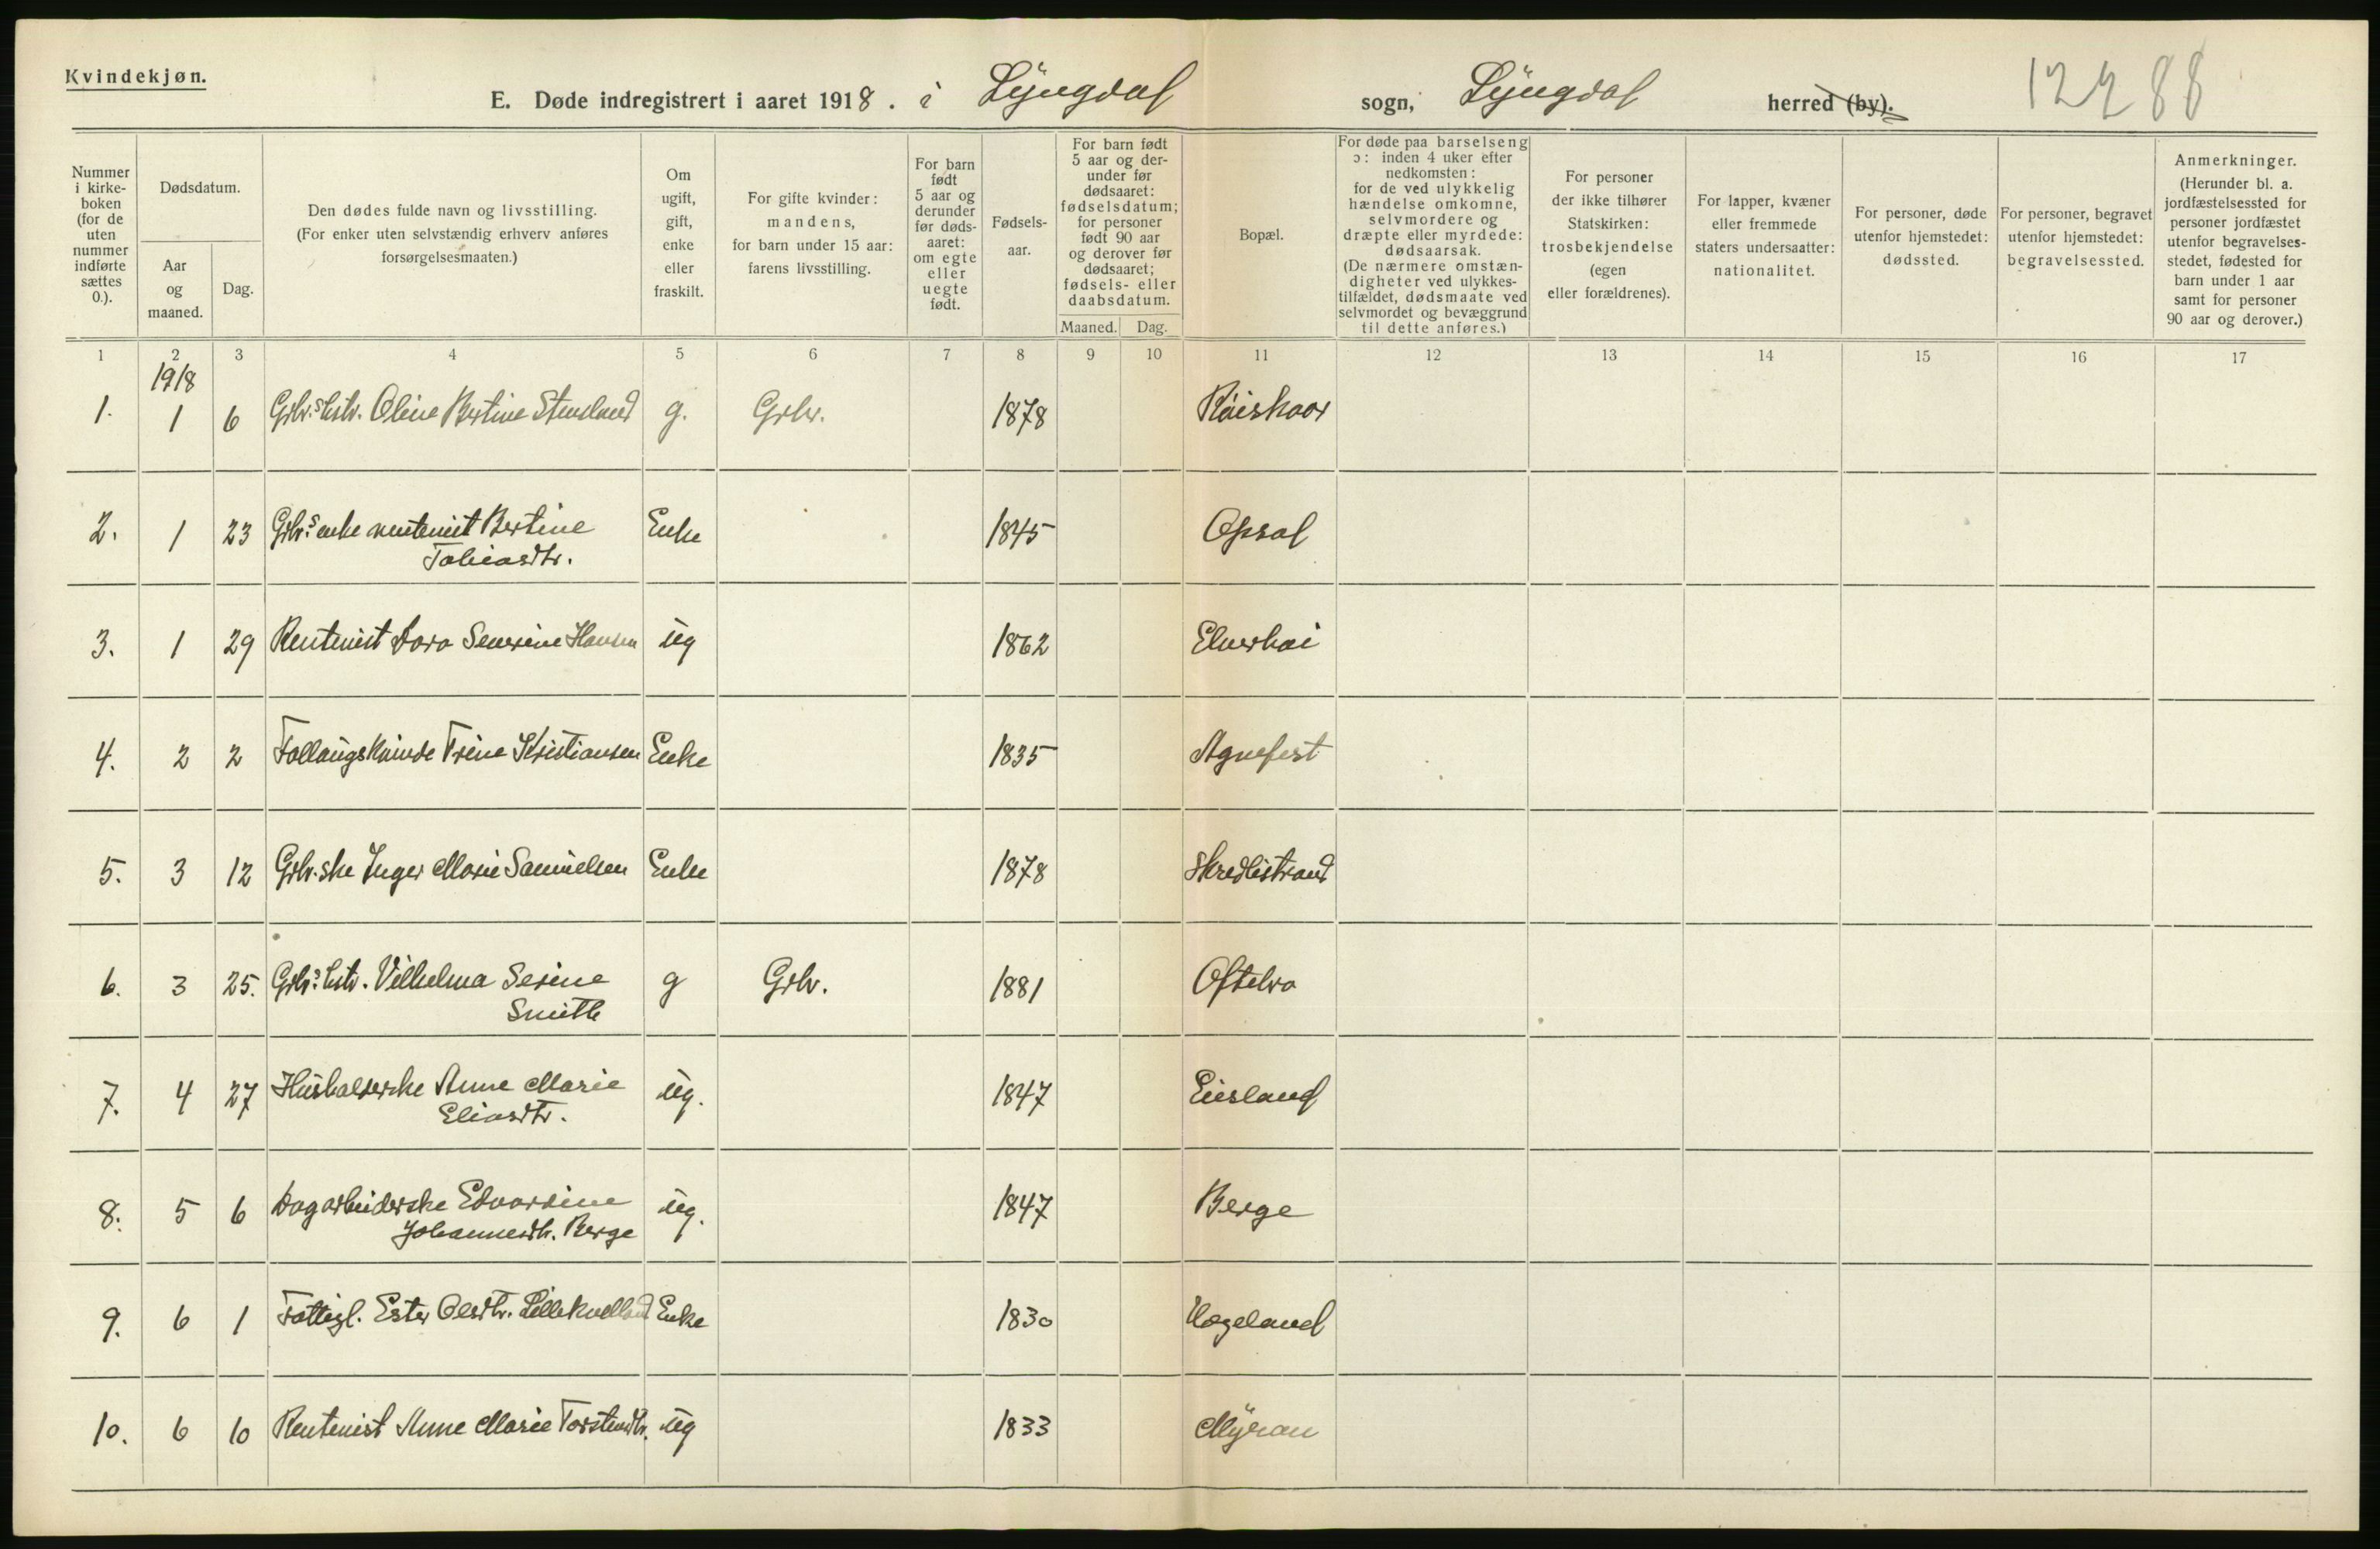 Kvindekjøn.
E. Døde indregistrert i aaret 1918. i Lyngdal sogn, Lyngdal herred (by).
12288
Nummer i kirke-boken (for de uten nummer indførte sættes 0.).
Dødsdatum.
Aar og maaned.
Dag.
Den dødes fulde navn og livsstilling. (For enker uten selvstændig erhverv anføres forsørgelsesmaaten.)
Om ugift, gift, enke eller fraskilt.
For gifte kvinder: mandens, for barn under 15 aar: farens livsstilling.
For barn født 5 aar og derunder før døds-aaret: om egte eller uegte født.
Fødsels-aar.
For barn født 5 aar og der-under før dødsaaret: fødselsdatum; for personer født 90 aar og derover før dødsaaret; fødsels- eller daabsdatum.
Maaned. Dag.
Bopæl.
For døde paa barselseng ɔ: inden 4 uker efter nedkomsten: for de ved ulykkelig hændelse omkomne, selvmordere og dræpte eller myrdede: dødsaarsak. (De nærmere omstæn-digheter ved ulykkes-tilfældet, dødsmaate ved selvmordet og bevæggrund til dette anføres.)
For personer der ikke tilhører Statskirken: trosbekjendelse (egen eller forældrenes).
For lapper, kvæner eller fremmede staters undersaatter: nationalitet.
For personer, døde utenfor hjemstedet: dødssted.
For personer, begravet utenfor hjemstedet: begravelsessted.
Anmerkninger. (Herunder bl. a. jordfæstelsessted for personer jordfæstet utenfor begravelses-stedet, fødested for barn under 1 aar samt for personer 90 aar og derover.)
1 2 3 4 5 6 7 8 9 10 11 12 13 14 15 16 17
1918
1. 1 6 Grbr.s hstr. Oline Bertine Stensland g. Grbr. 1878
2. 1 23 Grbr.s enke rentenist Bertine Enke 1845 Opsal
Tobiasdtr.
3. 1 29 Rentenist Dora Severine Hansen ug 1862 Elverhøi
4. 2 2 Trine Kristiansen Enke 1835 Agnefest
5. 3 12 Grbr.ske Inger Marie Samuelsen Enke 1878 Skredlistrand
6. 3 25. Grbr.s hstr. Vilhelma Serine g Grbr. 1881 Oftebro
Smith
7. 4 27 Husholderske Anne Marie ug. 1847
Eliasdtr.
8. 5 6 Dagarbeiderske Edvardine ug. 1847 Berge
Johannesdtr. Berge
9. 6 1 Fattigl. Ester Olesdtr. Lillekvelland Enke 1830 Hægeland
10. 6 10 Rentenist Anne Marie Torstensdtr. ug 1833 Myran